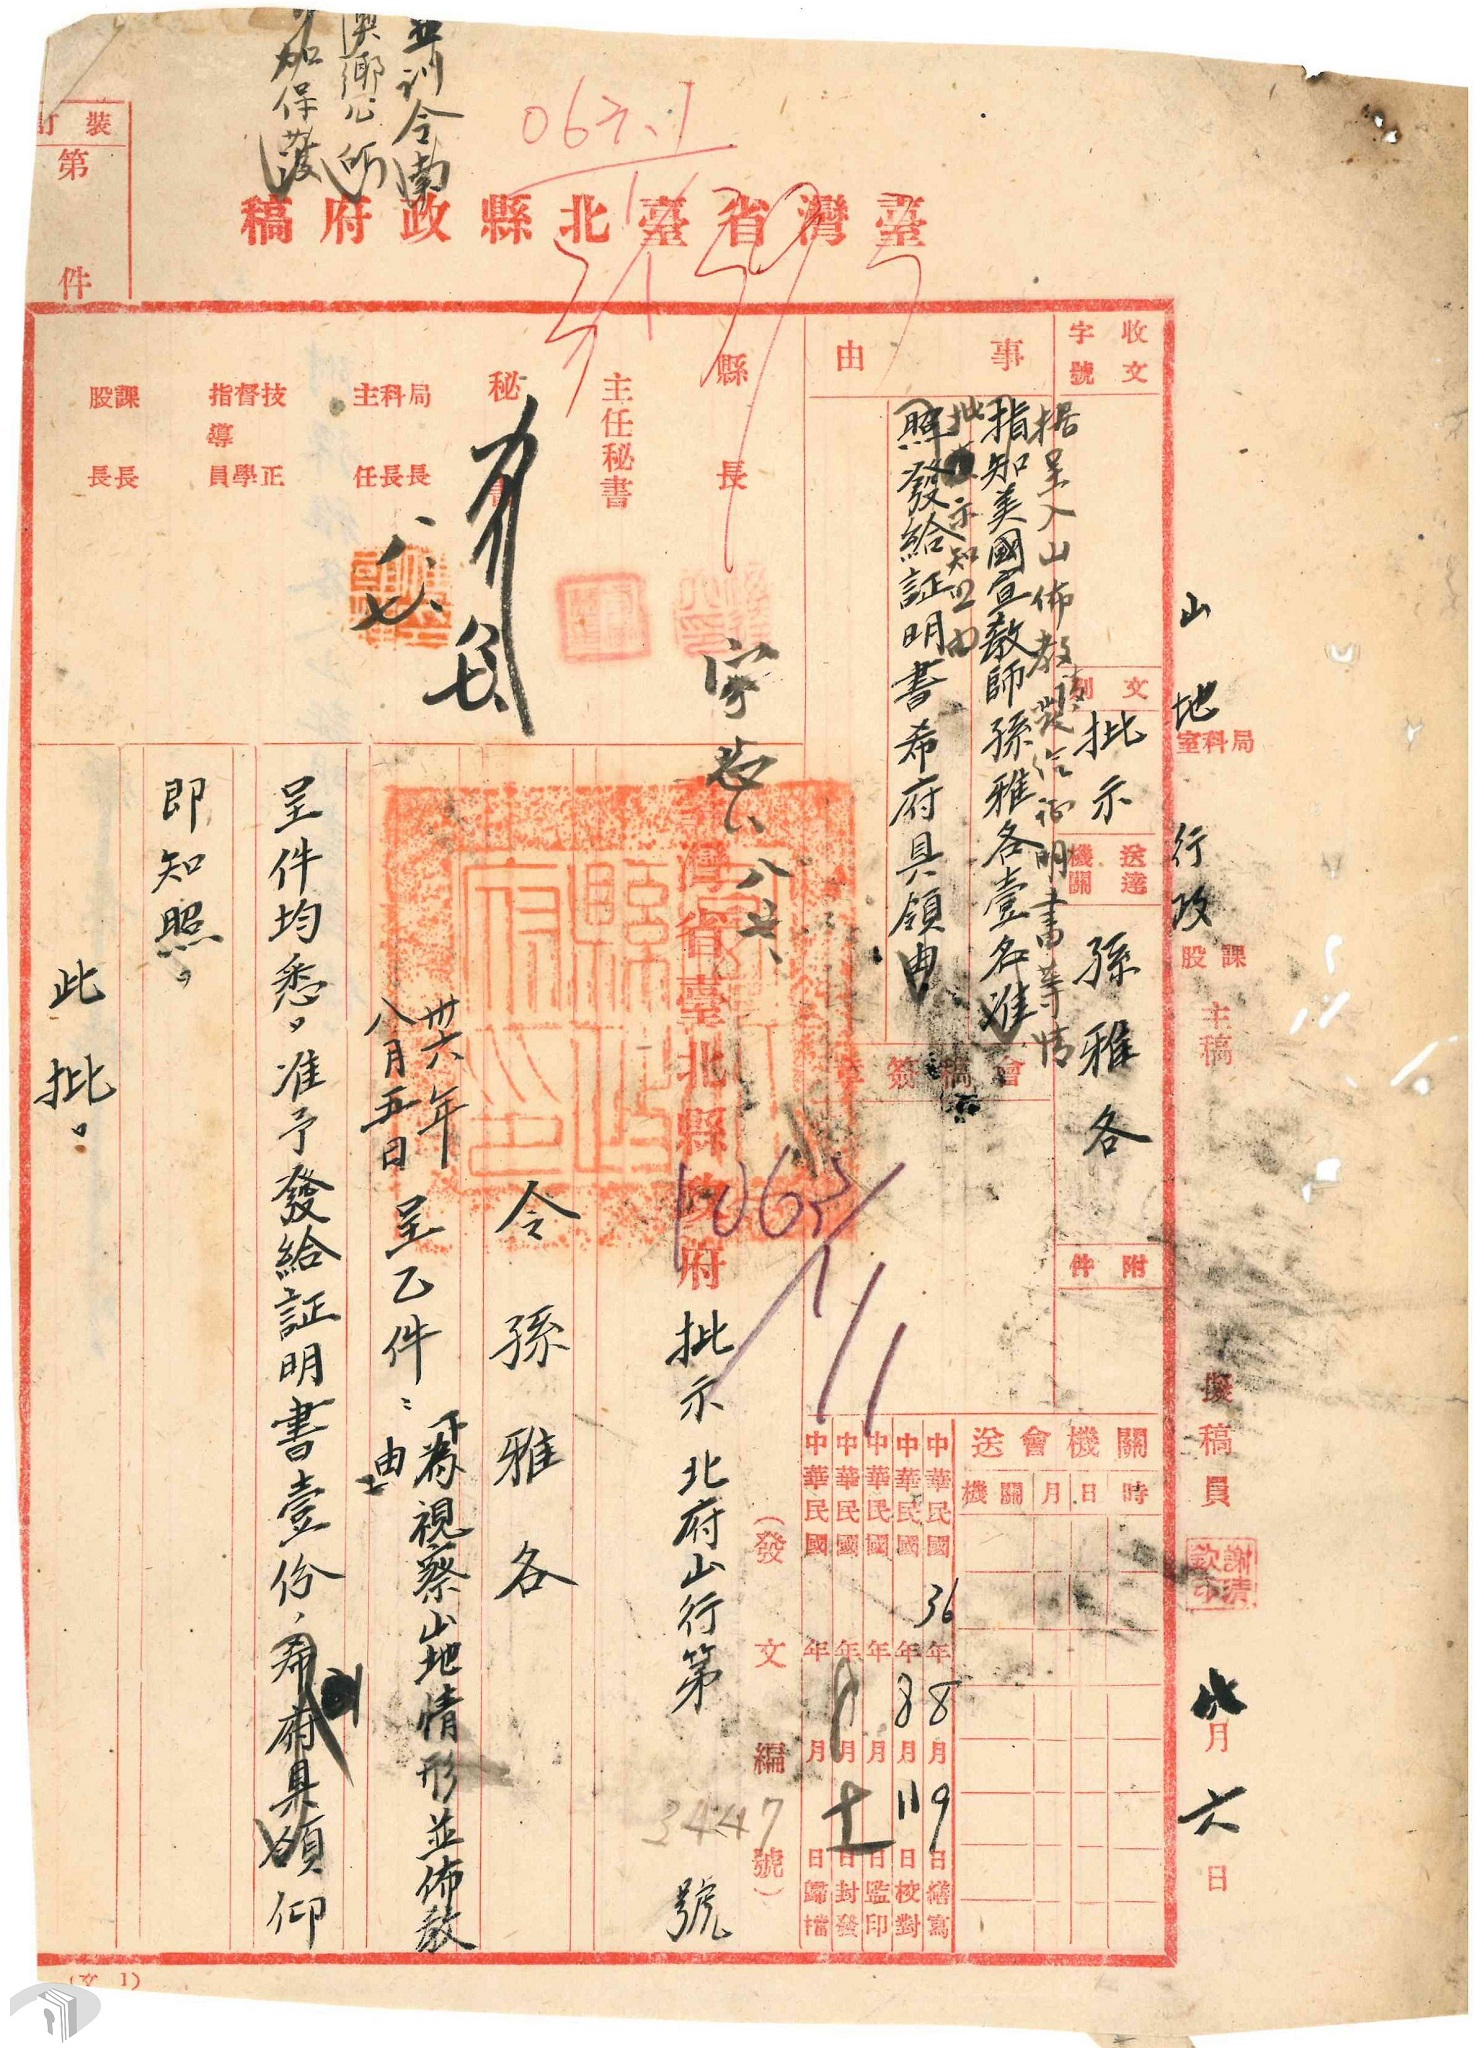 並訓令南
澳鄉公所
加保護
063.1
裝訂
第 件
臺灣省臺北縣政府稿
收文
字號
文別
批示
送達機關
孫雅各
附件
事由
据呈入山佈教製給証明書等情
指知美國宣教師孫雅各壹名准
批示知照由
照發給証明書希府具領由
會稿簽章
縣長
主任秘書
秘書
局長
科長
主任
技正
督學
指導員
課長
股長
山地行政
局科室
課股
主稿
擬稿員
謝清欽印
月六日
送會機關
機關
月日時
中華民國36年8月9日繕寫
中華民國 年8月11日校對
中華民國 年 月 日監印
中華民國 年8月十一日封發
中華民國 年 月 日歸檔
1063
1/1
(發文編號)
臺灣省臺北縣政府批示 北府山行第3447號
令孫雅各
卅六年
八月五日
呈乙件:
為視察山地情形並佈教
由
呈件均悉,准予發給証明書壹份,希府具領仰
即知照。
此批。
(文 1)